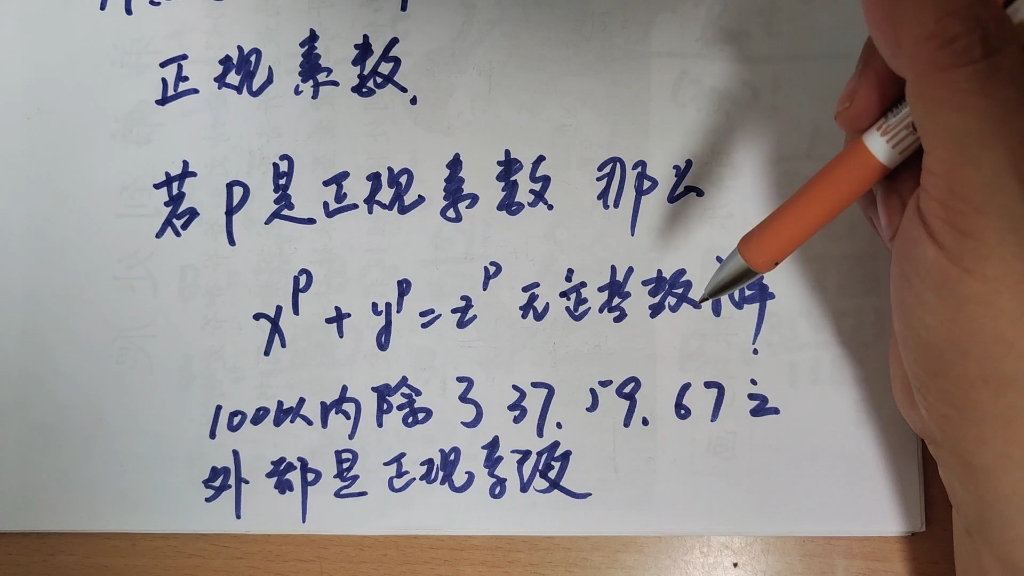 正规素数.
若p是正规素数 那么
x^p + y^p = z^p 无正整数解!
100以内除了37.59.67之
外都是正规素数